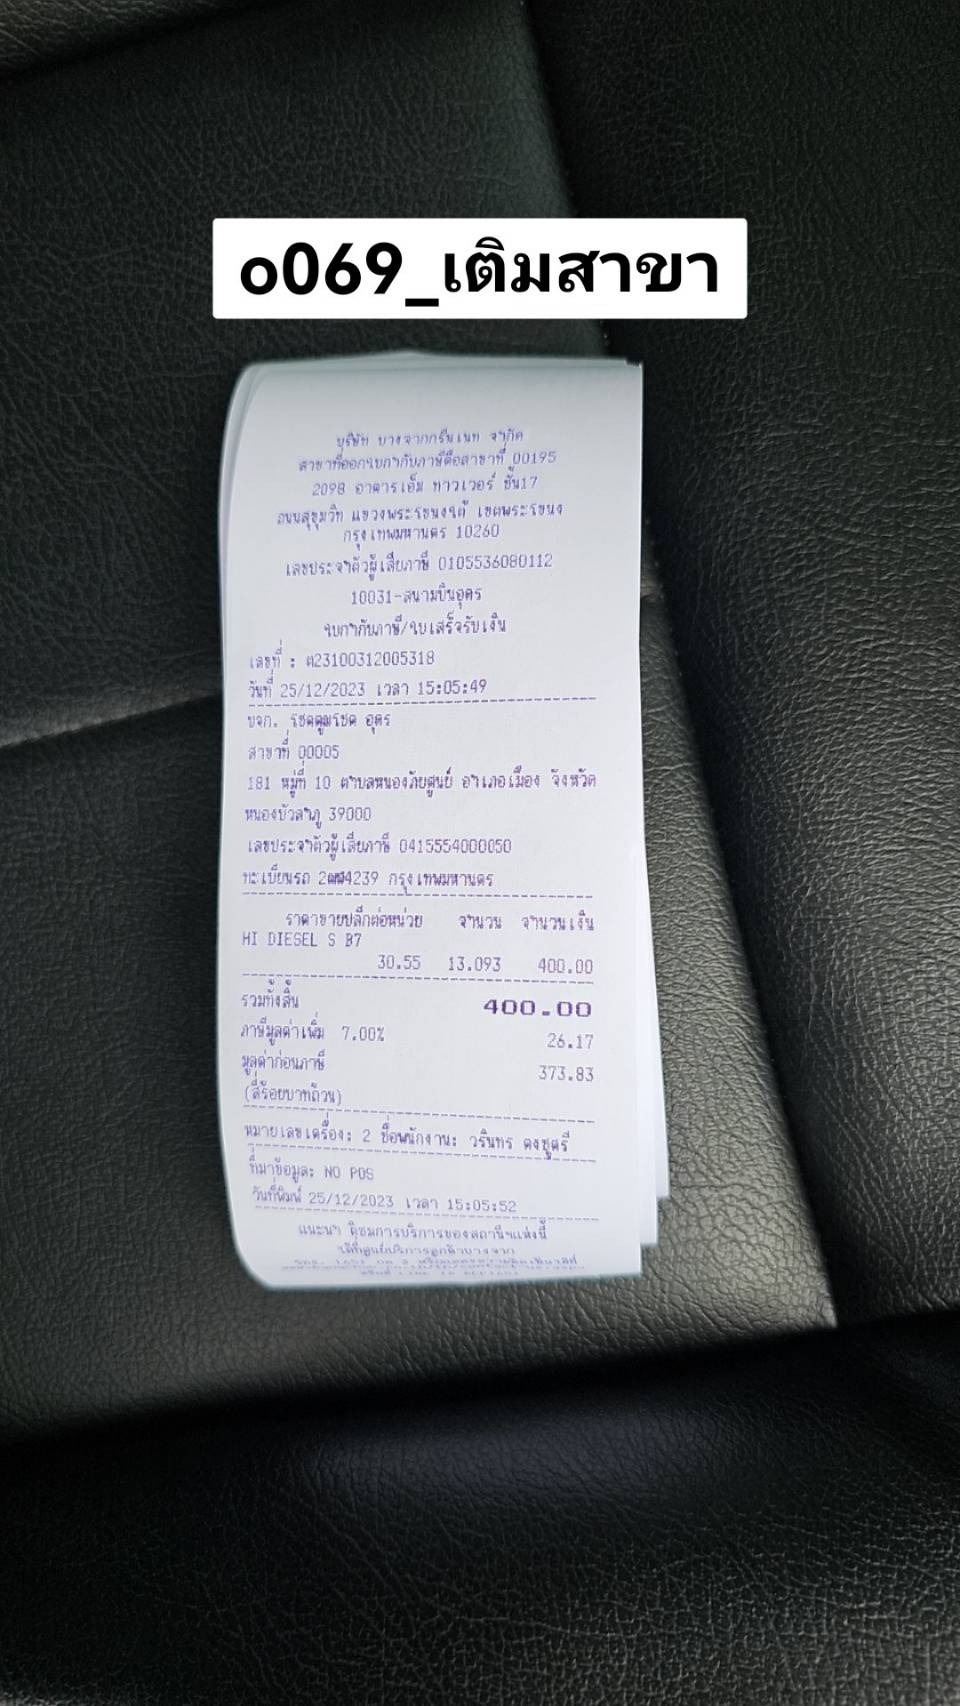 o069_เติมสาขา
บริษัท บางจากกรีนเนท จำกัด
สาขาที่ออกใบกำกับภาษีคือสาขาที่ 00195
2098 อาคารเอ็ม ทาวเวอร์ ชั้น17
ถนนสุขุมวิท แขวงพระโขนงใต้ เขตพระโขนง
กรุงเทพมหานคร 10260
เลขประจำตัวผู้เสียภาษี 0105536080112
10031-สนามบินอุดร
ใบกำกับภาษี/ใบเสร็จรับเงิน
เลขที่ : ต23100312005318
วันที่ 25/12/2023 เวลา 15:05:49
บจก. โชคคูมโชค อุดร
สาขาที่ 00005
181 หมู่ที่ 10 ตำบลหนองภัยศูนย์ อำเภอเมือง จังหวัด
หนองบัวลำภู 39000
เลขประจำตัวผู้เสียภาษี 0415554000050
ทะเบียนรถ 2ฒฬ4239 กรุงเทพมหานคร
ราคาขายปลีกต่อหน่วย จำนวน จำนวนเงิน
HI DIESEL S B7
30.55 13.093 400.00
รวมทั้งสิ้น 400.00
ภาษีมูลค่าเพิ่ม 7.00% 26.17
มูลค่าก่อนภาษี 373.83
(สี่ร้อยบาทถ้วน)
หมายเลขเครื่อง: 2 ชื่อพนักงาน: วรินทร คงชูศรี
ที่มาข้อมูล: NO POS
วันที่พิมพ์ 25/12/2023 เวลา 15:05:52
แนะนำ ติชมการบริการของสถานีฯแห่งนี้
ได้ที่ศูนย์บริการลูกค้าบางจาก
โทร. 1651 กด 2